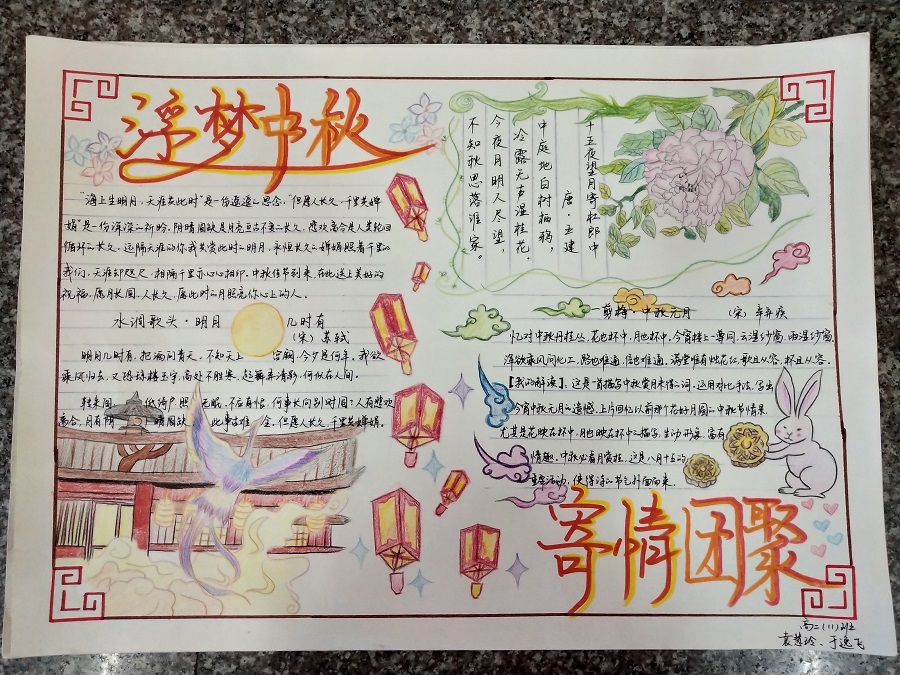 浮梦中秋
“海上生明月，天涯共此时”是一份遥遥的思念，“但愿人长久，千里共婵
娟”是一份深深的祈盼。阴晴圆缺是月亮亘古不变的长久，悲欢离合是人类轮回
循环的长久。远隔天涯的你我共赏此时的明月，永恒长久的婵娟照着千里的
我们，天涯却咫尺，相隔千里亦心心相印。中秋佳节到来，在此送上美好的
祝福，愿月长圆，人长久，愿此时的月照亮你心上的人。
水调歌头·明月几时有
（宋）苏轼
明月几时有，把酒问青天，不知天上宫阙，今夕是何年，我欲
乘风归去，又恐琼楼玉宇，高处不胜寒，起舞弄清影，何似在人间。
转朱阁，低绮户，照无眠，不应有恨，何事长向别时圆？人有悲欢
离合，月有阴晴圆缺，此事古难全。但愿人长久，千里共婵娟。
十五夜望月寄杜郎中
唐·王建
中庭地白树栖鸦，
冷露无声湿桂花。
今夜月明人尽望，
不知秋思落谁家。
一剪梅·中秋元月
（宋）辛弃疾
忆对中秋月桂丛，花也杯中，月也杯中，今宵楼上一尊同，云湿纱窗，雨湿纱窗，
浑欲乘风问化工，路也难通，信也难通，满堂惟有烛花红，歌且从容，杯且从容。
【我的解读】：这是一首描写中秋赏月来情的词，运用对比手法，写出
今宵中秋无月的遗憾，上片回忆以前那个花好月圆的中秋节情景
尤其是花映在杯中，月也映在杯中的描写，生动形象，富有
情趣，中秋必看月赏桂，这是八月十五的
重要活动，使得诗的节气扑面而来。
寄情团聚
高二（11）班
袁慧玲、于逸飞